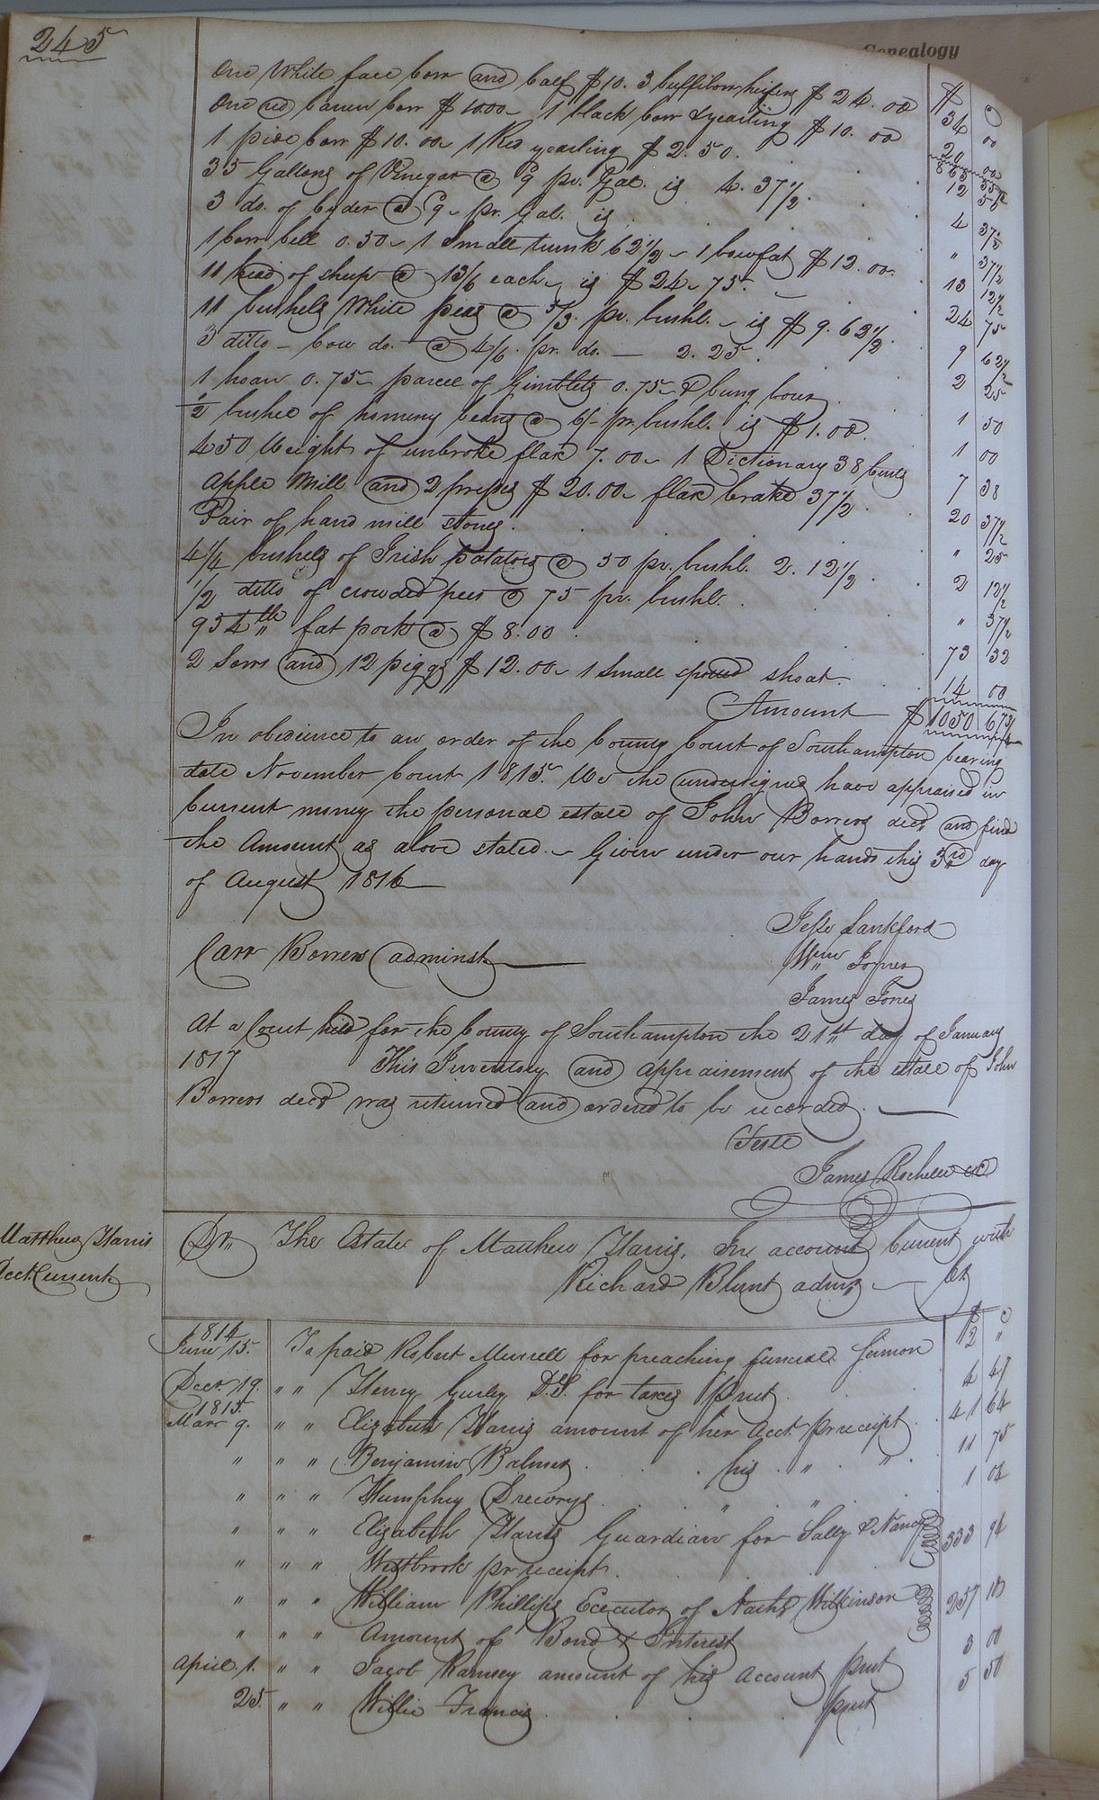 245
Genealogy
One White face Cow and Calf $10. 3 buffilow heifers $24.00 $ 34 C 00
One red Cow $10.00 1 black Cow & yearling $10.00 20 00
863 55½
1 pide Cow $10.00 1 Red yearling $2.50. 12 50
35 Gallons of Vinegar @ 9 pr. Gal. is 4.37½. 4 37½
3 do. of Cyder @ 9 pr. Gal. is " 37½
1 Cow bell 0.50 1 Small trunk 62½ 1 bowfat $12.00 13 12½
11 head of sheep @ 13/6 each is $24.75. 24 75
11 bushels White peas @ 5/3. pr. bushl. is $9.62½ 9 62½
3 ditto Cow do. @ 4/6. pr. do. 2.25. 2 25
1 hoan 0.75 parcel of Gimblets 0.75 & bung borer 1 50
½ bushel of homeny beans @ pr. bushl. is $1.00. 1 00
450 Weight of unbroke flax 7.00 1 Dictionary 38 Cents 7 38
Apple Mill and 2 presses $20.00 flax brake 37½. 20 37½
Pair of hand mill stones. " 25
4¼ bushels of Irish potatoes @ 50 pr. bushl. 2.12½ 2 12½
½ ditto of crowded peas @ 75 pr. bushl. " 37½
934 lb fat pork @ $8.00 73 32
2 Sows and 12 piggs $12.00 1 small shoat. 14 00
Amount $ 1050 67¾
In obedience to an order of the County Court of Southampton bearing
date November Court 1815. We the undersigned have appraised in
Current money the personal estate of John Borrers decd and find
the Amount as above stated. Given under our hands this 3rd day
of August 1816
Jesse Lankford
Carr Borrers adminstr Wm Joyner
James Jones
At a Court held for the County of Southampton the 21st day of January
1817 This Inventory and appraisement of the estate of John
Borrers decd was returned and ordered to be recorded.
Teste
James Rochelle CC
Matthew Harris
Acct Current
Dr. The Estate of Matthew Harris, In account Current with
Richard Blunt admr Cr
1814 $ C
June 15. To paid Robert Murrell for preaching funeral Sermon 2 "
Decr. 19. " " Henry Gurley D.S. for taxes prect 4 47
1815.
Mar 9. " " Elizabeth Harris amount of her Acct. pr receipt 41 64
" " " Benjamin Balmer his " " 11 75
" " " Humphrey Drewrys " " 1 04
" " " Elizabeth Harris Guardian for Sally & Nancy
" " " Westbrook pr receipt. 333 94
" " " William Phillips Executor of Nathl Wilkinson
" " " Amount of Bond & Interest 257 18
April 1. " " Jacob Ramsey amount of his account prect 3 00
25. " " Willie Francis prect 5 50